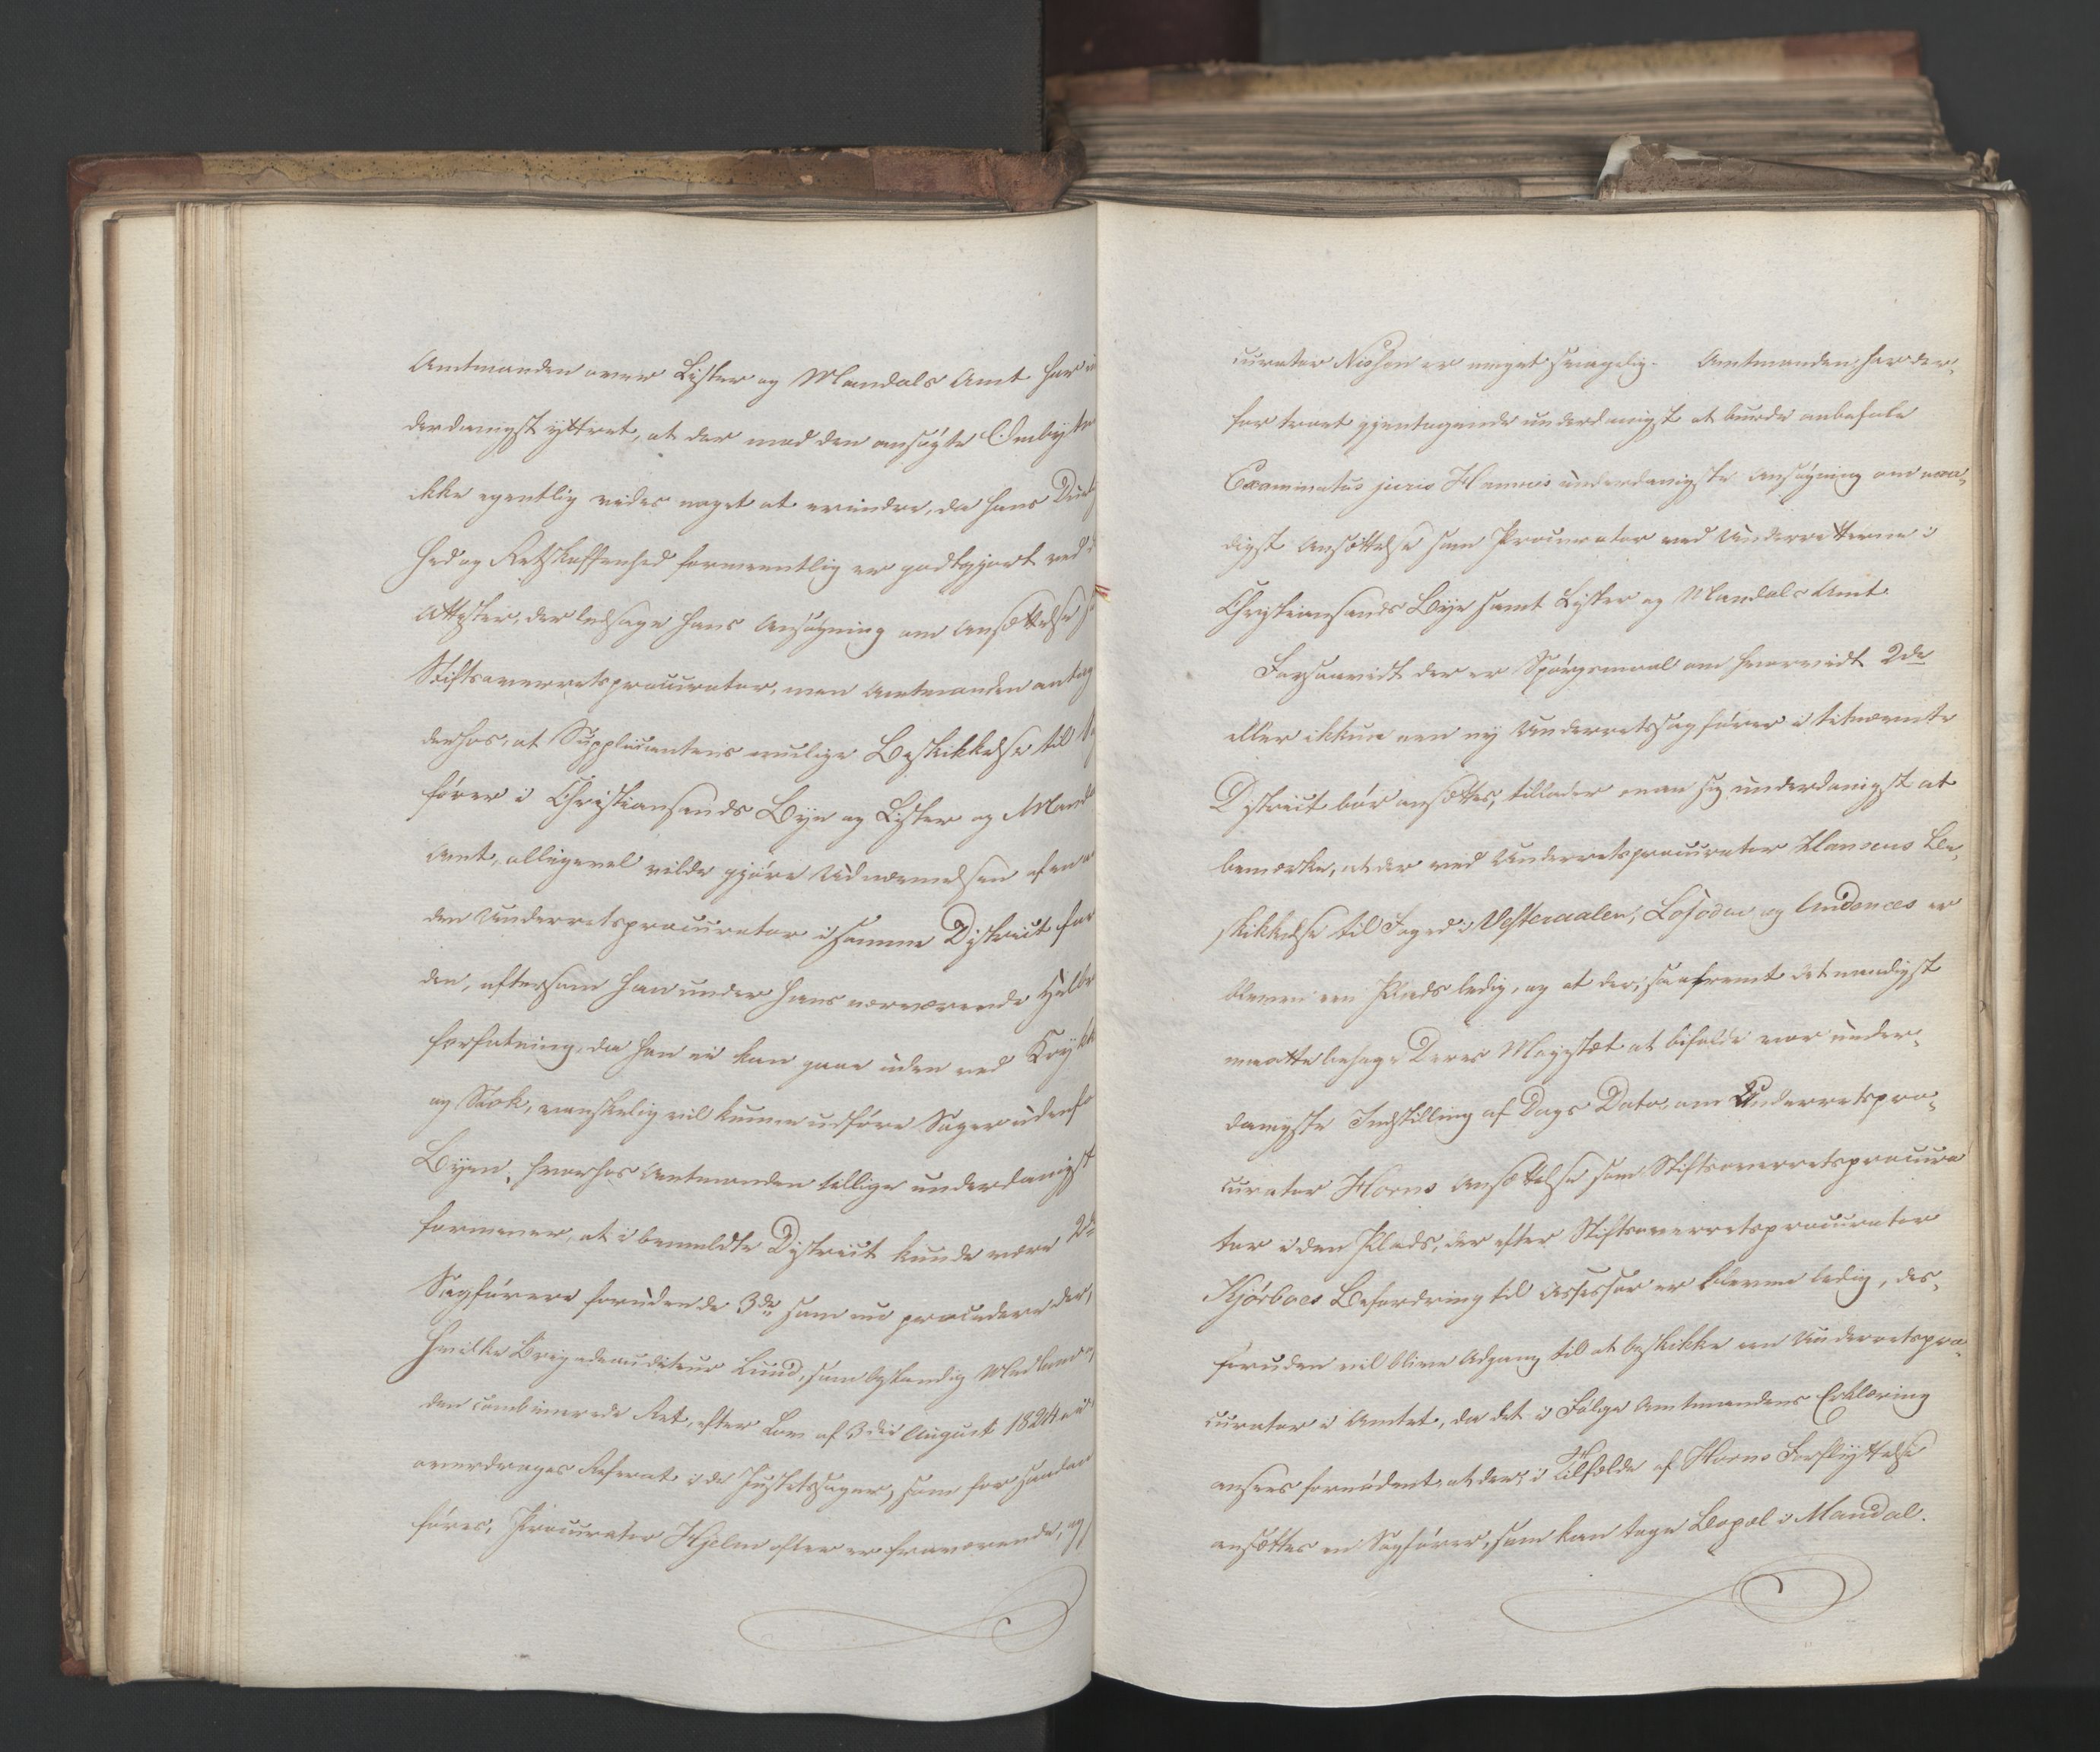 Amtmanden over Lister og Mandals Amt har
derdanigst yttret, at der mod den ansøgte Ombytn
ikke egentlig vides noget at erindre, da hans Due
hed og Retskaffenhed formeentlig er godtgjort ved
Attester, der ledsage hans Ansøgning om Ansættelse
Stiftsoverretsprocurator, men Amtmanden antag
derhos, at Supplicantens muelige Beskikkelse til
fører i Christiansands Bye og Lister og Mand
Amt, alligevel vilde gjøre Udnævnelsen af en
den Underretsprocurator i samme District for
den, eftersom han under hans nærværende Helbr
forfatning, da han ei kan gaae uden ved Krykk
og Stok, vanskelig vil kunne udføre Sager udenfo
Byen, hvorhos Amtmanden tillige underdanigst
formener, at i bemeldte District kunde være 2de
Sagførere foruden de 3de som nu procedere der,
hvilke Brigadeauditeur Lund, som bestandig Medlem
den combinerede Ret, efter Lov af 3die August 1824
overdrages Referat i de Justitssager, som for samme
føres, Procurator Hjelm ofte er fraværende, og
curator Nissen er meget svagelig. Amtmanden har der-
for troet gjentagende underdanigst at burde anbefale
Examinatus juris underdanigste Ansøgning om naa-
digst Ansættelse som Procurator ved Underretterne i
Christiansands Bye samt Lister og Mandals Amt.
Forsaavidt der er Spørgsmaal om hvorvidt 2de
eller ikkun een ny Underretssagfører i titnævnte
District bør ansættes, tillader man sig underdanigst at
bemærke, at der ved Underretsprocurator Hansens Be-
skikkelse til Foged i Vesteraalen, Lofoden og Andenæs er
bleven een Plads ledig, og at der, saafremt det naadigst
maatte behage Deres Majestæt at bifalde vor under-
danigste Indstilling af Dags Dato om Underretspro-
curator Horns Ansættelse som Stiftsoverretsprocura
tor i den Plads, der efter Stiftsoverretsprocurator
Kjørboes Befordring til Assessor er bleven ledig, des-
foruden vil blive Adgang til at beskikke een Underretspro-
curator i Amtet, da det i Følge Amtmandens Erklæring
ansees fornødent, at der, i Tilfælde af Horns Forflyttelse
ansættes en Sagfører, som kan tage Bopæl i Mandal.